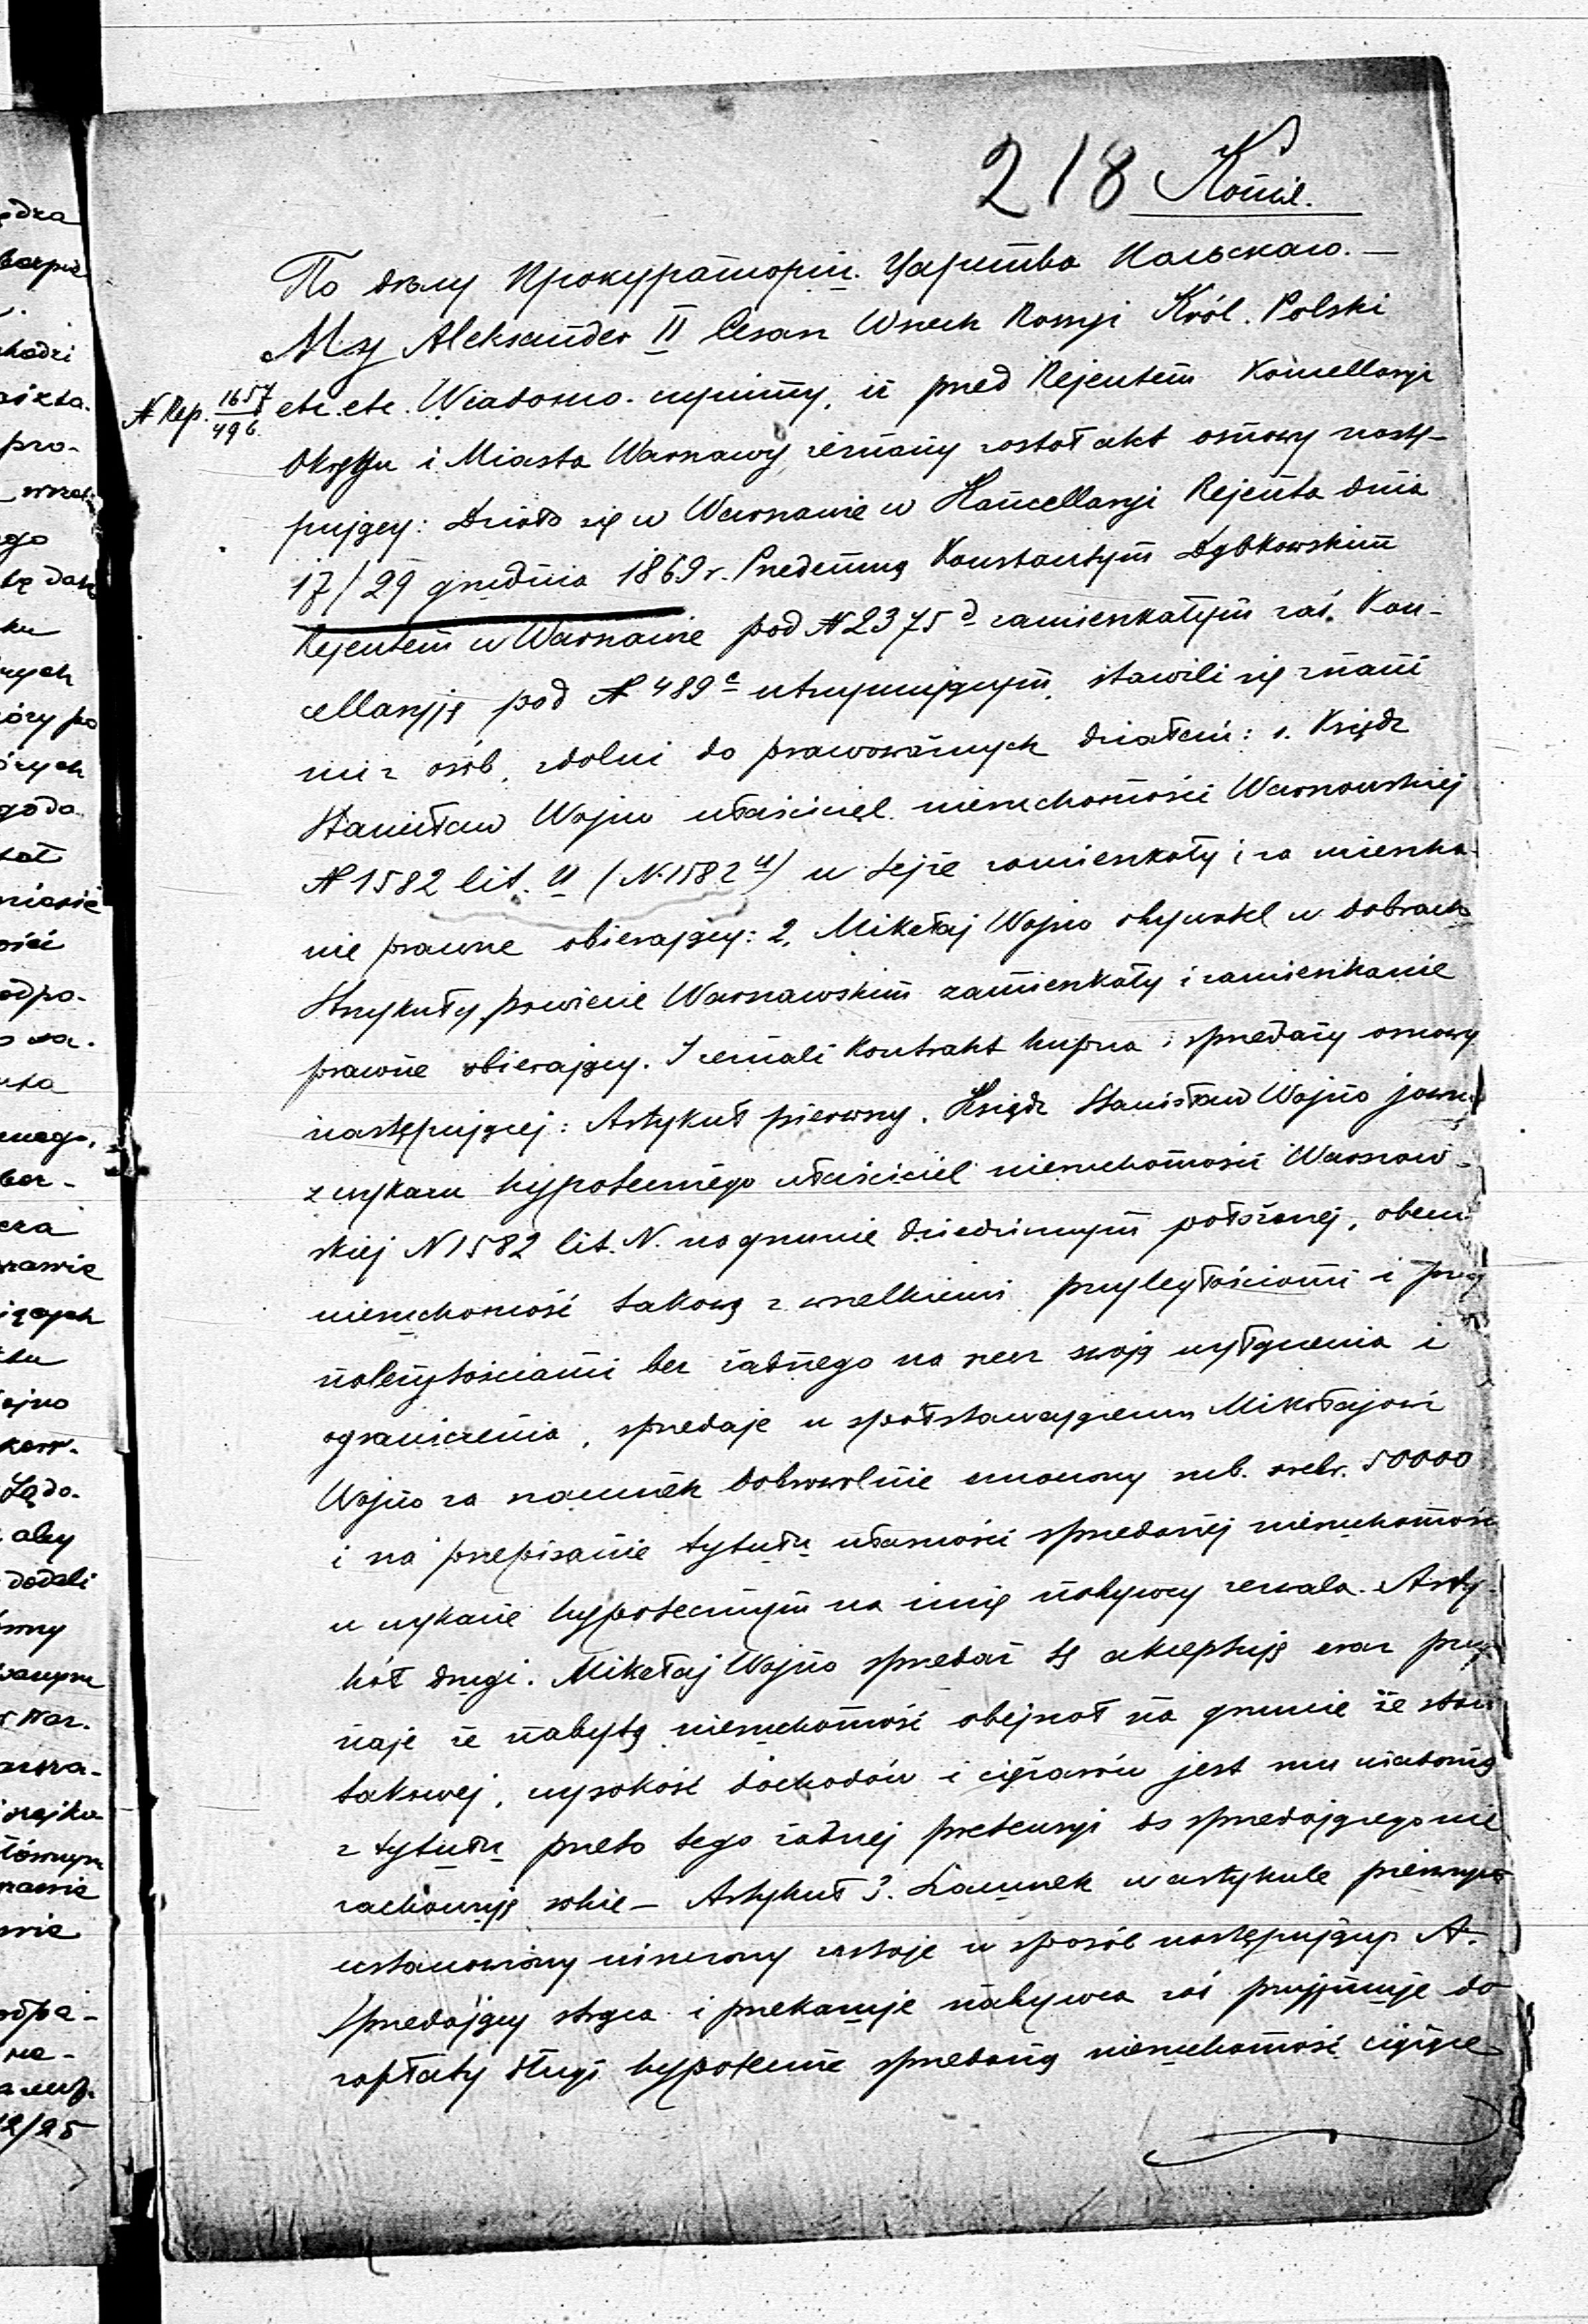 218 Kopia.
По дѣлу Прокураторіи Царства Польскаго. —
My Aleksander II Cesarz Wszech Rossyi Król. Polski
N Rep. 1657/496 etc. etc. Wiadomo czynimy, iż przed Rejentem Kancellaryi
Okręgu i Miasta Warszawy, zeznany został akt osnowy nastę-
pującej: Działo się w Warszawie w Kancellaryi Rejenta dnia
17/29 grudnia 1869 r. Przedemną Konstantym Dąbkowskim
Rejentem w Warszawie pod N 2375 d zamieszkałym zaś Kan-
cellaryję pod N 489 c utrzymującym, stawili się znani
mi z osób, zdolni do prawoważnych działań: 1. Ksiądz
Stanisław Wojno właściciel nieruchomości Warszawskiej
N 1582 lit. U (N. 1582 U) w tejże zamieszkały i zamieszka-
nie prawne obierający: 2. Mikołaj Wojno obywatel w dobrach
Strzykuły powiecie Warszawskim zamieszkały i zamieszkanie
prawne obierający. I zeznali Kontrakt kupna i sprzedaży osnowy
następującej: Artykuł pierwszy. Ksiądz Stanisław Wojno jawny
z wykazu hypotecznego właściciel nieruchomości Warszaw-
skiej N 1582 lit. N. na gruncie dziedzicznym położonej, obecnie
nieruchomość takową z wszelkiemi przyległościami i przy
należytościami bez żadnego na rzecz swoją wyłączenia i
ograniczenia, sprzedaje współstawającemu Mikołajowi
Wojno za szacunek dobrowolnie umówiony rub. srebr. 50000
i na przepisanie tytułu własności sprzedanej nieruchomości
w wykazie hypotecznym na imię nabywcy zezwala. Arty-
kół drugi. Mikołaj Wojno sprzedaż tę akceptuję oraz przy
znaje że nabytą nieruchomość objął na gruncie że stan
takowej, wysokość dochodów i ciężarów jest mu wiadomą
z tytułu przeto tego żadnej pretensyi do sprzedającego nie
rachowuję sobie — Artykuł 3. Szacunek w artykule pierwszym
ustanowiony uiszczony zostaje w sposób następujący A.
Sprzedający strąca i przekazuje nabywca zaś przyjmuje do
zapłaty długi hypoteczne sprzedaną nieruchomość ciążące